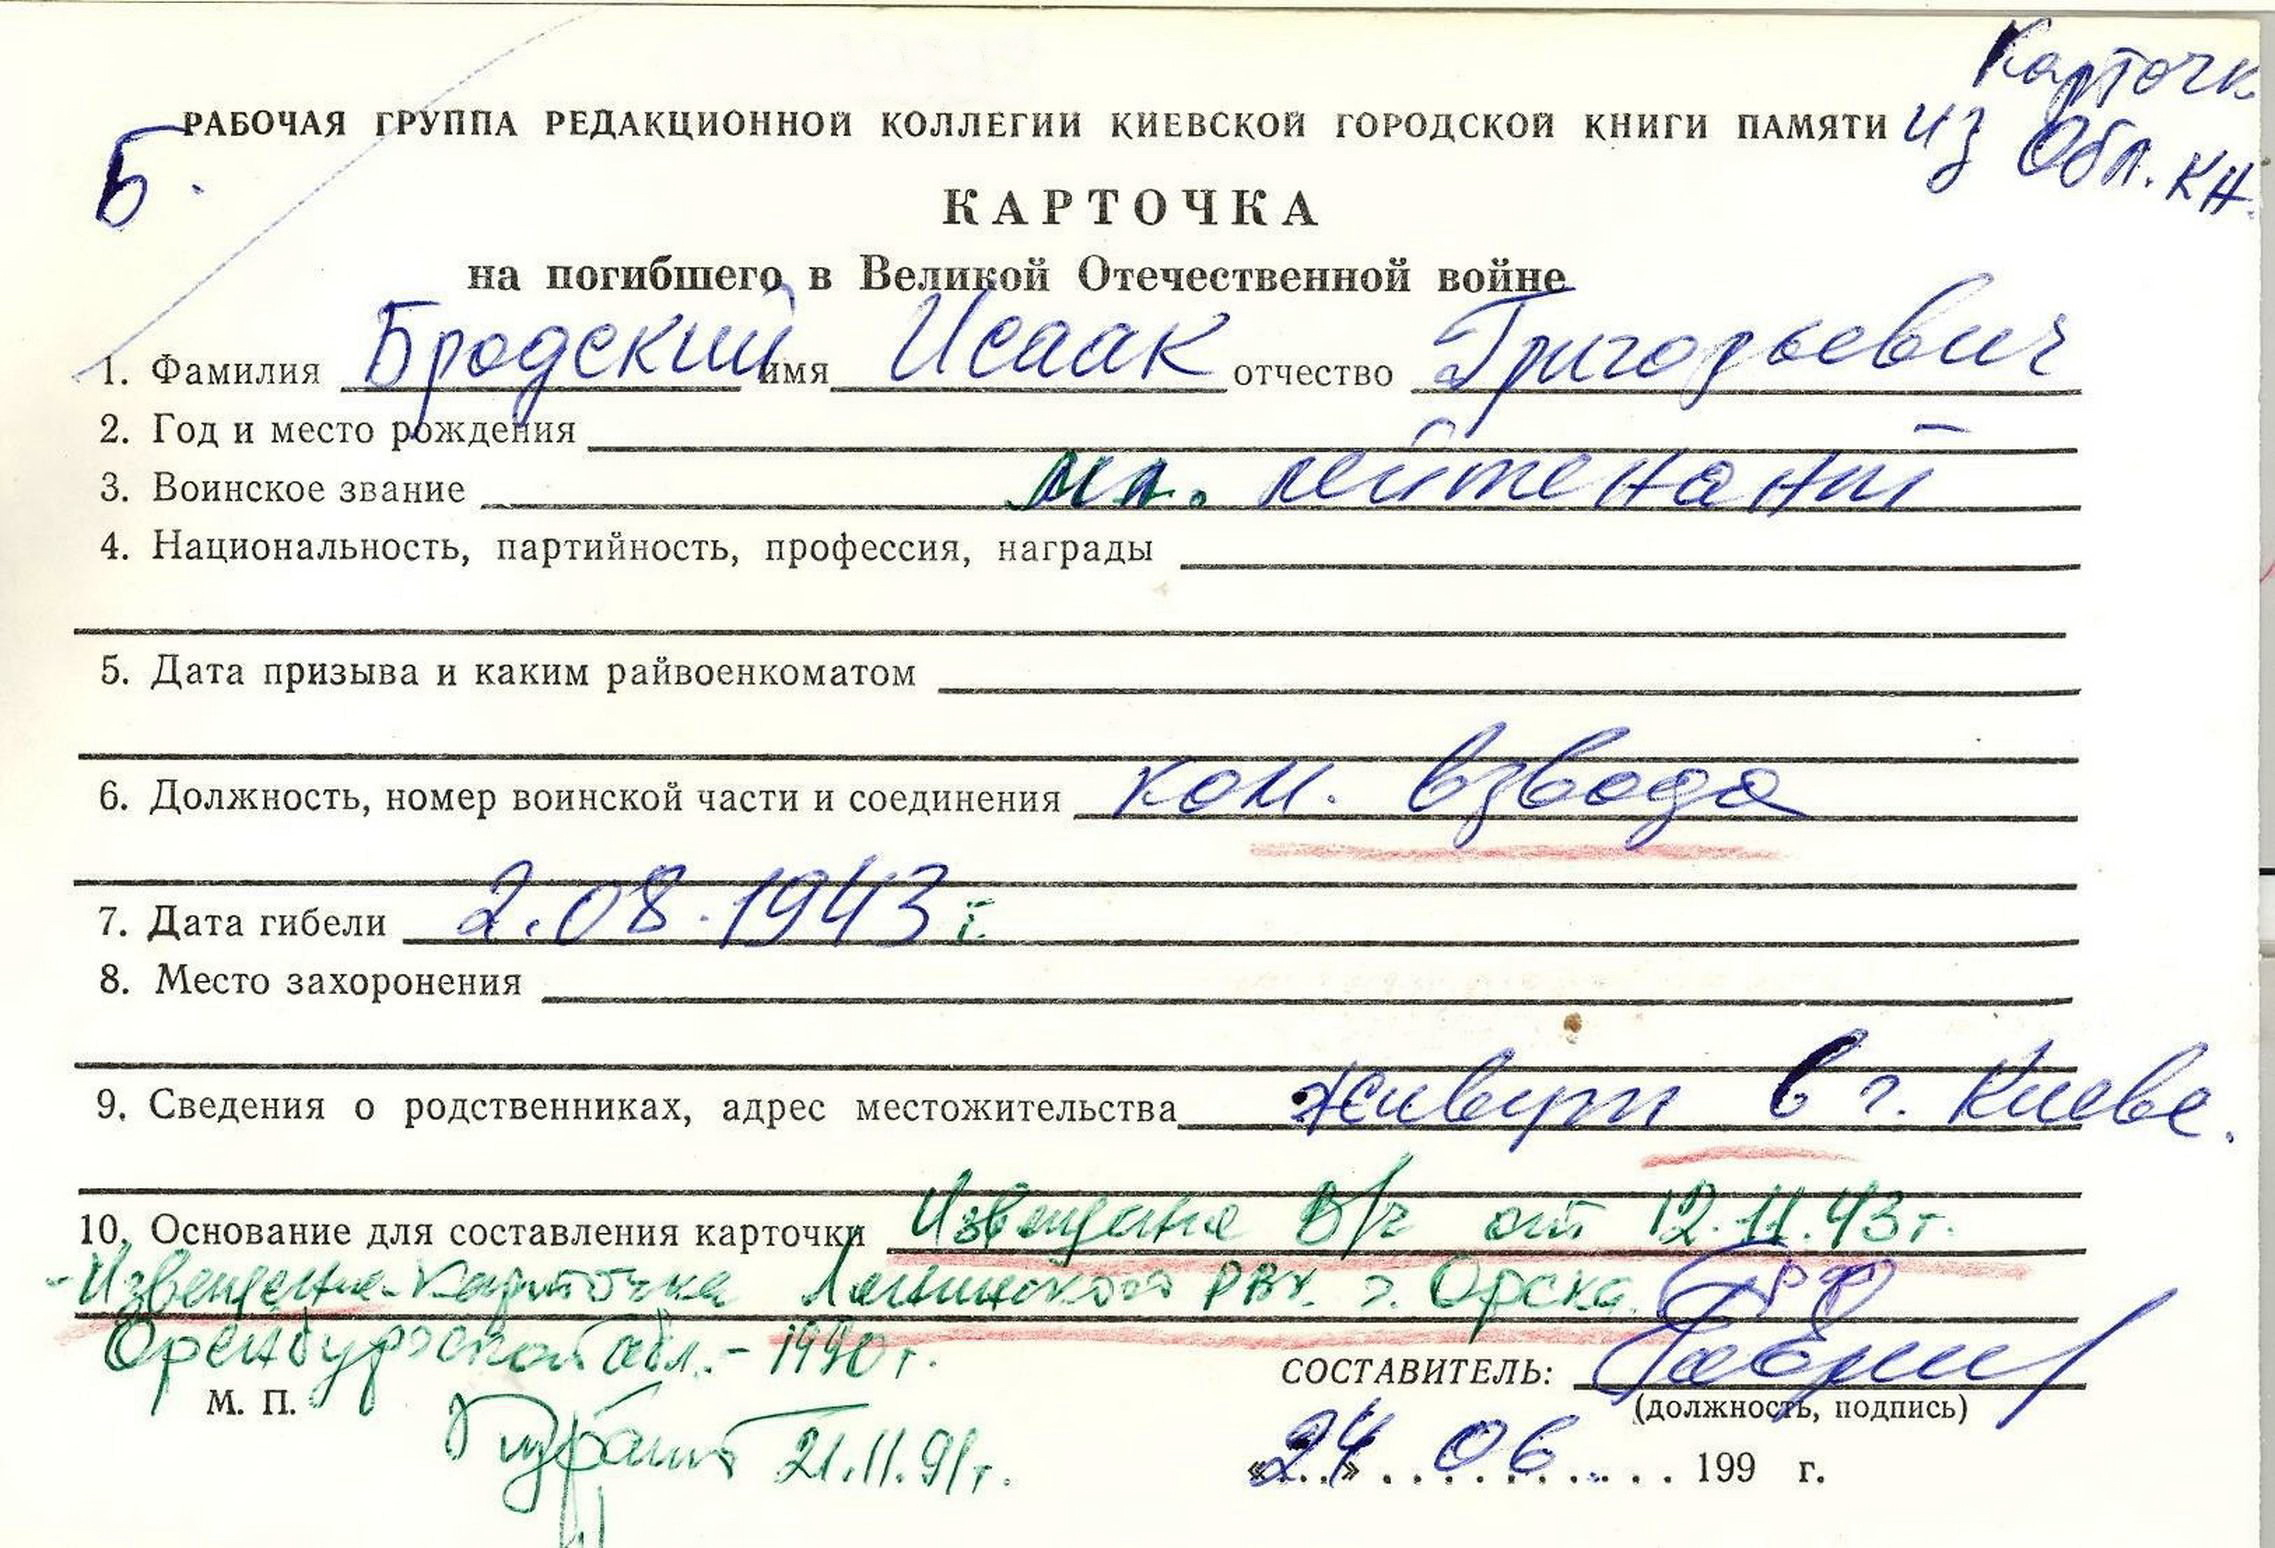 Карточк.
РАБОЧАЯ ГРУППА РЕДАКЦИОННОЙ КОЛЛЕГИИ КИЕВСКОЙ ГОРОДСКОЙ КНИГИ ПАМЯТИ из Обл. кн.
Б.
КАРТОЧКА
на погибшего в Великой Отечественной войне
1. Фамилия Бродский имя Исаак отчество Григорьевич
2. Год и место рождения
3. Воинское звание мл. лейтенант
4. Национальность, партийность, профессия, награды
5. Дата призыва и каким райвоенкоматом
6. Должность, номер воинской части и соединения ком. взвода
7. Дата гибели 2.08.1943 г.
8. Место захоронения
9. Сведения о родственниках, адрес местожительства живут в г. Киеве.
10. Основание для составления карточки Извещение В/ч от 12.11.43 г.
- Извещение-карточка Ленинского РВК. г. Орска.
Оренбургской обл. - 1990 г.
СОСТАВИТЕЛЬ:
М. П. (должность, подпись)
21.11.91 г.
«24» 06 199 г.